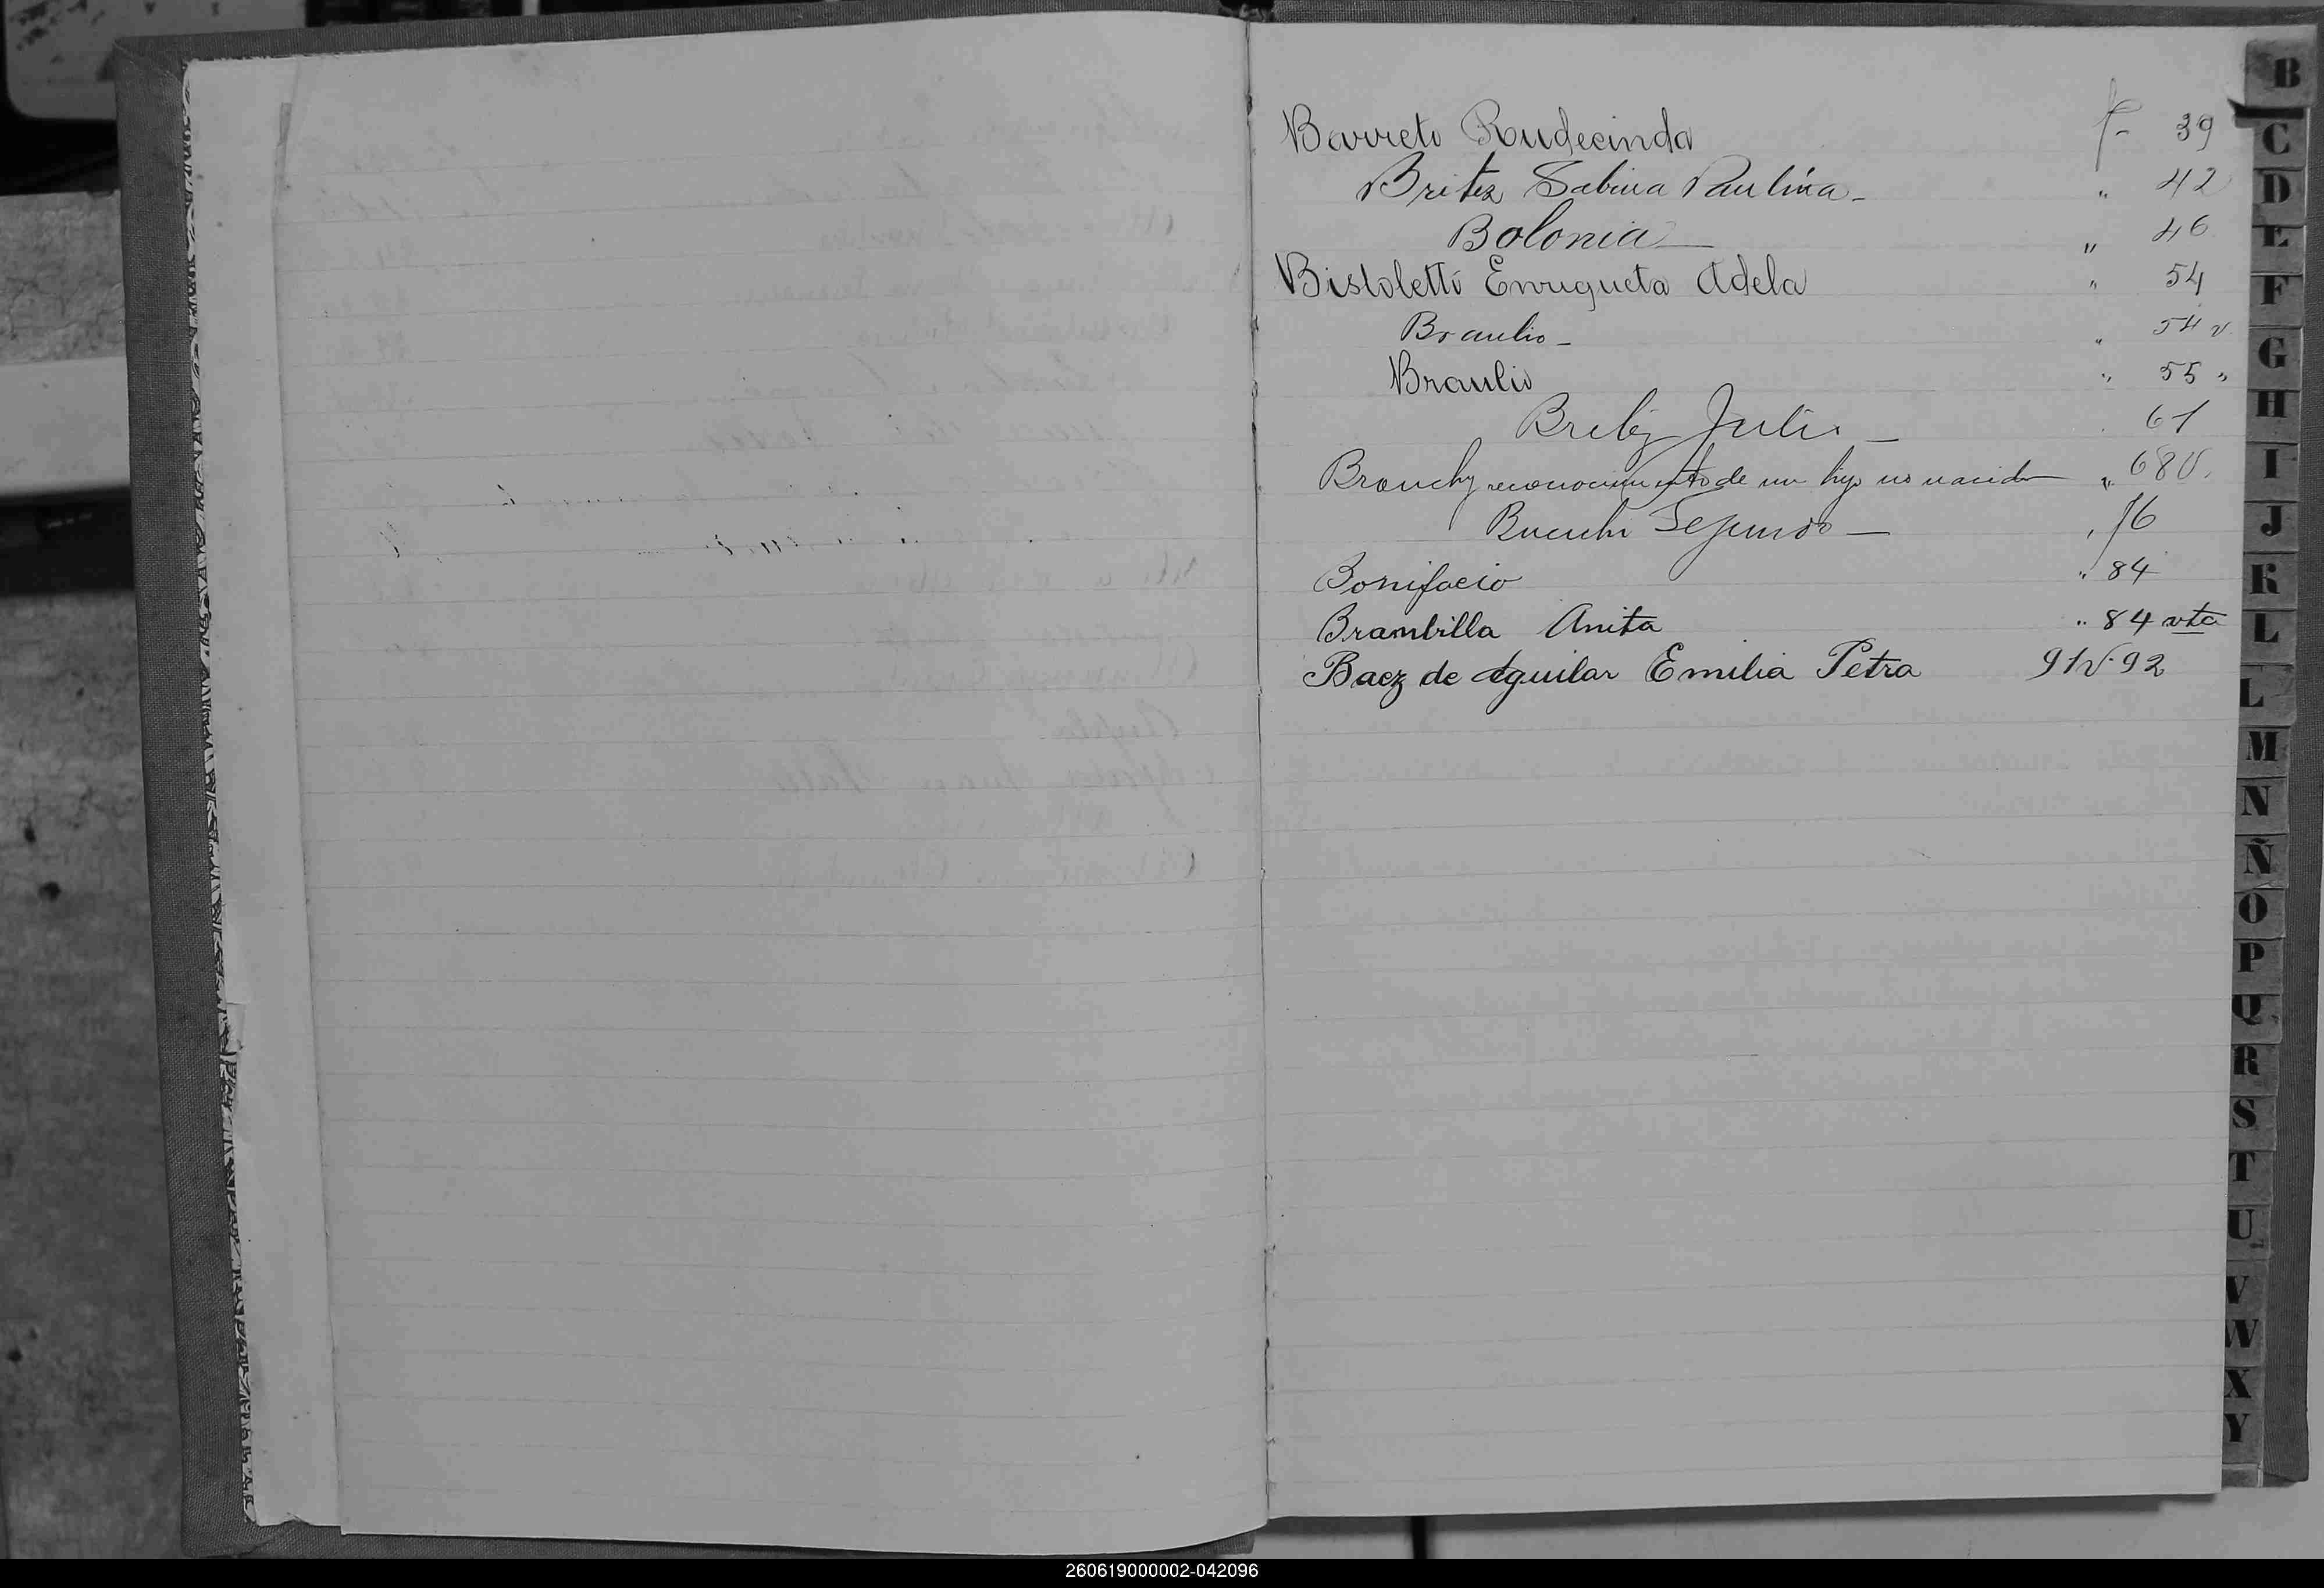 Barreto Rudecinda f- 39
Britez Sabina Paulina- " 42
Bolonia — " 46
Bistoletti Enriqueta Adela " 54
Braulio - " 54 v.
Braulio " 55 "
Julio — 61
Brouchy reconocimiento de un hijo no nacido " 68 v.
Segundo — " 76
Bonifacio " 84
Brambilla Anita " 84 vta
Baez de Aguilar Emilia Petra 91v-92
B
C
D
E
F
G
H
I
J
K
L
L
M
N
Ñ
O
P
Q
R
S
T
U
V
W
X
Y
260619000002-042096